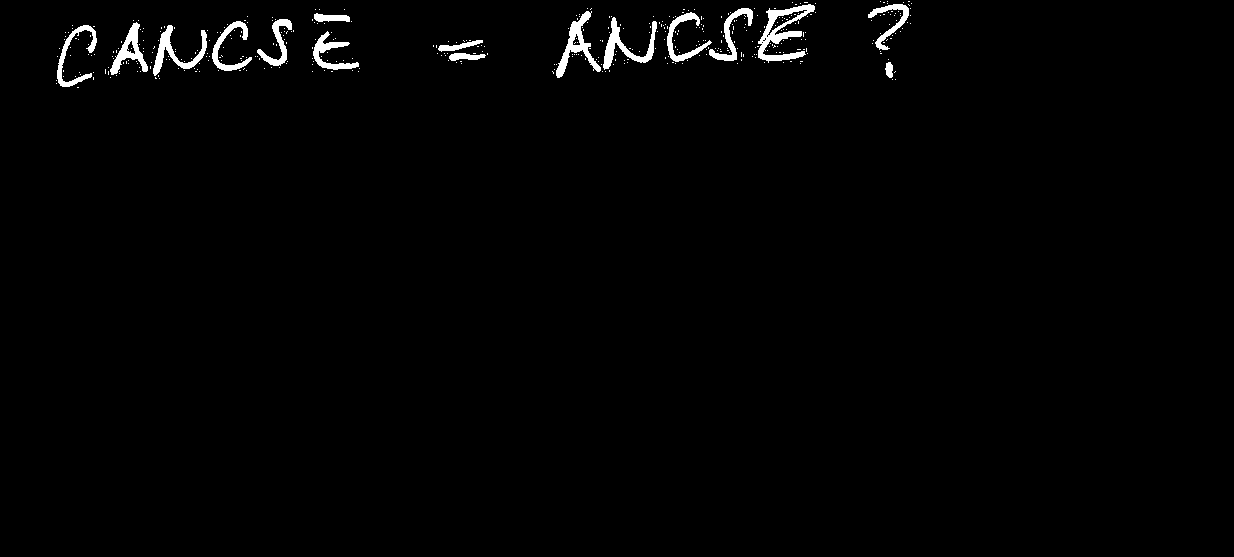 CANCSE = ANCSE ?